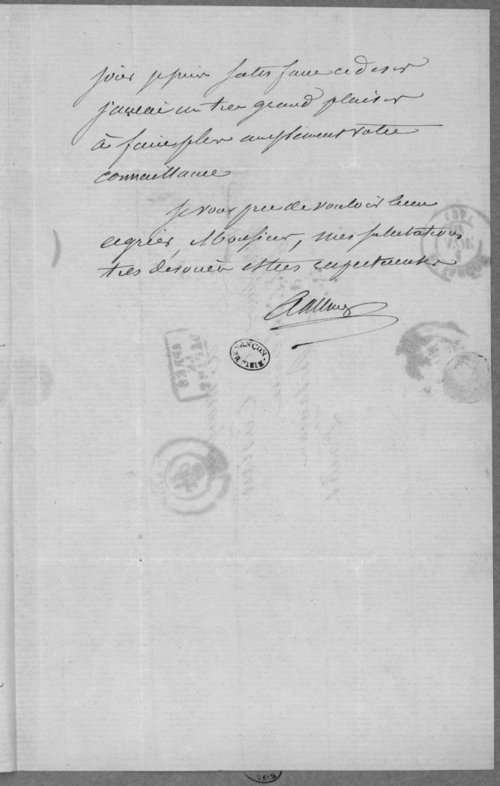 je puis satisfaire ce désir
j'aurai un tres grand plaisir
à faire plus amplement votre
connaissance
Je vous prie de vouloir bien
agréer, Monsieur, mes salutations
très dévouées et très respectueuses
BIBL. BESANÇON